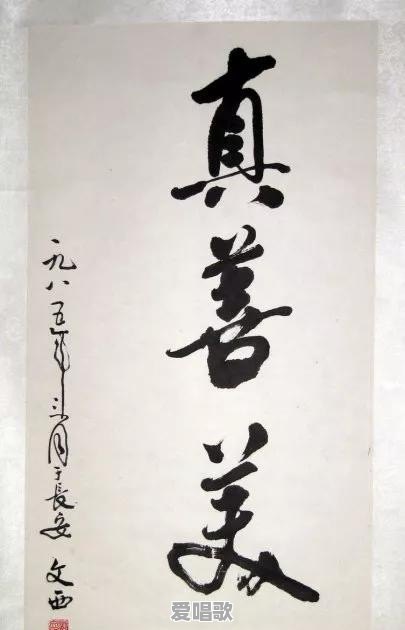 真善美
一九八五年三月于長安 文西
爱唱歌